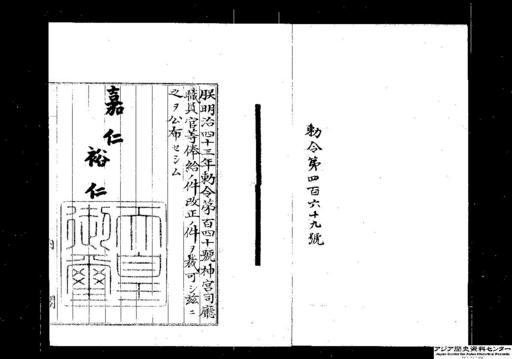 勅令第四百六十九號
朕明治四十三年勅令第百四十號神宮司廳
職員官等俸給ノ件改正ノ件ヲ裁可シ茲ニ
之ヲ公布セシム
嘉仁
裕仁
天皇
御璽
内
閣
アジア歴史資料センター
Japan Center for Asian Historical Records